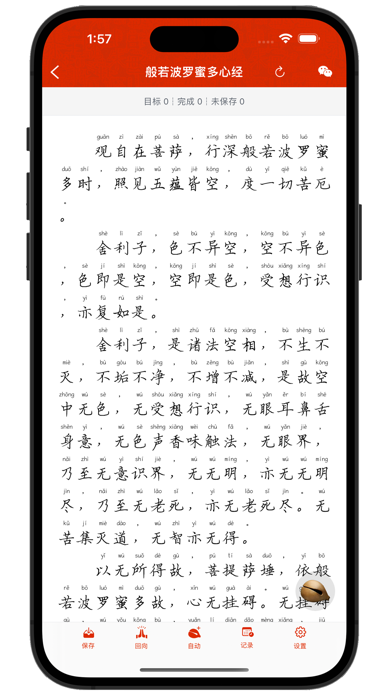 1:57
般若波罗蜜多心经
目标 0｜完成 0｜未保存 0
guān zì zài pú sà ， xíng shēn bō rě bō luó mì
观自在菩萨，行深般若波罗蜜
duō shí ， zhào jiàn wǔ yùn jiē kōng ， dù yī qiè kǔ è
多时，照见五蕴皆空，度一切苦厄
。
shè lì zǐ ， sè bù yì kōng ， kōng bù yì sè
舍利子，色不异空，空不异色
， sè jí shì kōng ， kōng jí shì sè ， shòu xiǎng xíng shí
，色即是空，空即是色，受想行识
， yì fù rú shì 。
，亦复如是。
shè lì zǐ ， shì zhū fǎ kōng xiàng ， bù shēng bù
舍利子，是诸法空相，不生不
miè ， bù gòu bù jìng ， bù zēng bù jiǎn ， shì gù kōng
灭，不垢不净，不增不减，是故空
zhōng wú sè ， wú shòu xiǎng xíng shí ， wú yǎn ěr bí shé
中无色，无受想行识，无眼耳鼻舌
shēn yì ， wú sè shēng xiāng wèi chù fǎ ， wú yǎn jiè ，
身意，无色声香味触法，无眼界，
nǎi zhì wú yì shí jiè ， wú wú míng ， yì wú wú míng
乃至无意识界，无无明，亦无无明
jìn ， nǎi zhì wú lǎo sǐ ， yì wú lǎo sǐ jìn 。 wú
尽，乃至无老死，亦无老死尽。无
kǔ jí miè dào ， wú zhì yì wú dé 。
苦集灭道，无智亦无得。
yǐ wú suǒ dé gù ， pú tí sà duǒ ， yī bō
以无所得故，菩提萨埵，依般
rě bō luó mì duō gù ， xīn wú guà ài 。 wú
若波罗蜜多故，心无挂碍。无挂碍
保存
回向
自动
记录
设置